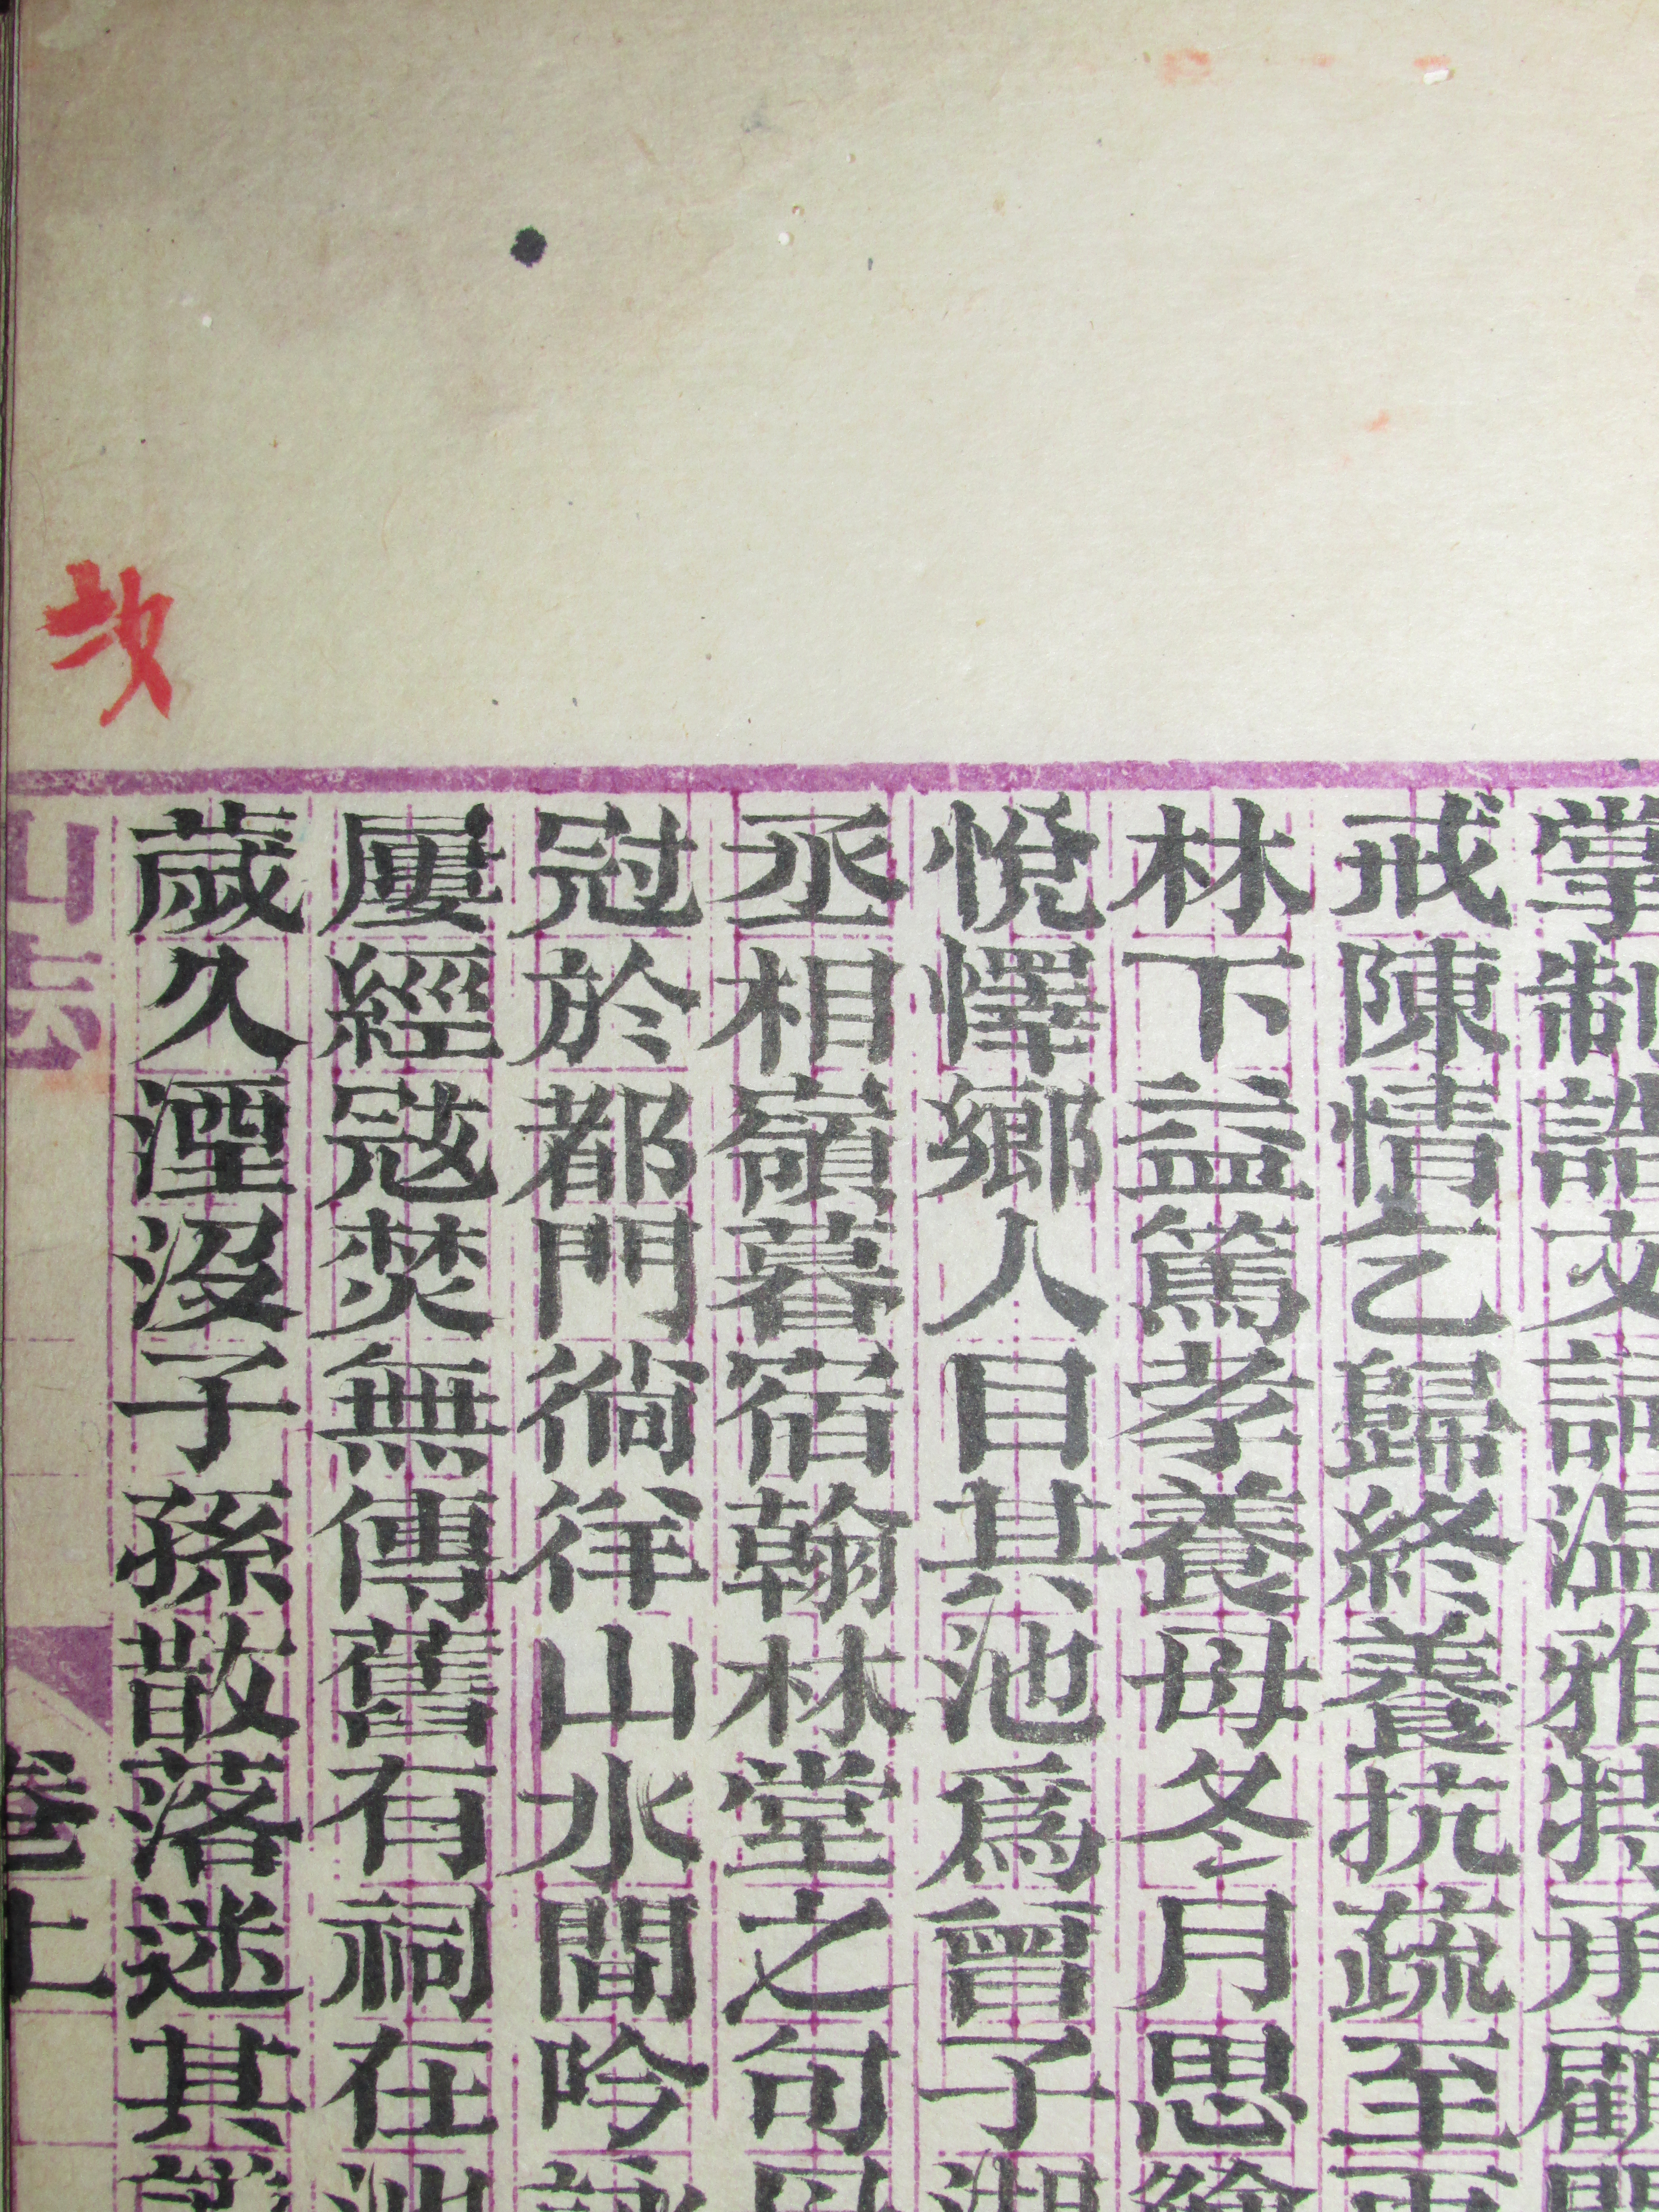 掌制誥文詞温雅特承顧
戒陳情乞歸終養抗疏至再
林下益篤孝養母冬月思
悅懌鄉人目其池爲曾子湖
丞相嶺暮宿翰林堂之句
冠於都門徜徉山水間吟詠
屢經寇焚無傳舊有祠在
歲久湮沒子孫散落迷其
山志
卷上